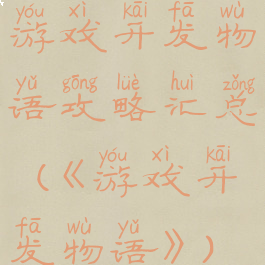 yóu xì kāi fā wù
游戏开发物
yǔ gōng lüè huì zǒng
语攻略汇总
yóu xì kāi
(《游戏开
fā wù yǔ
发物语》)